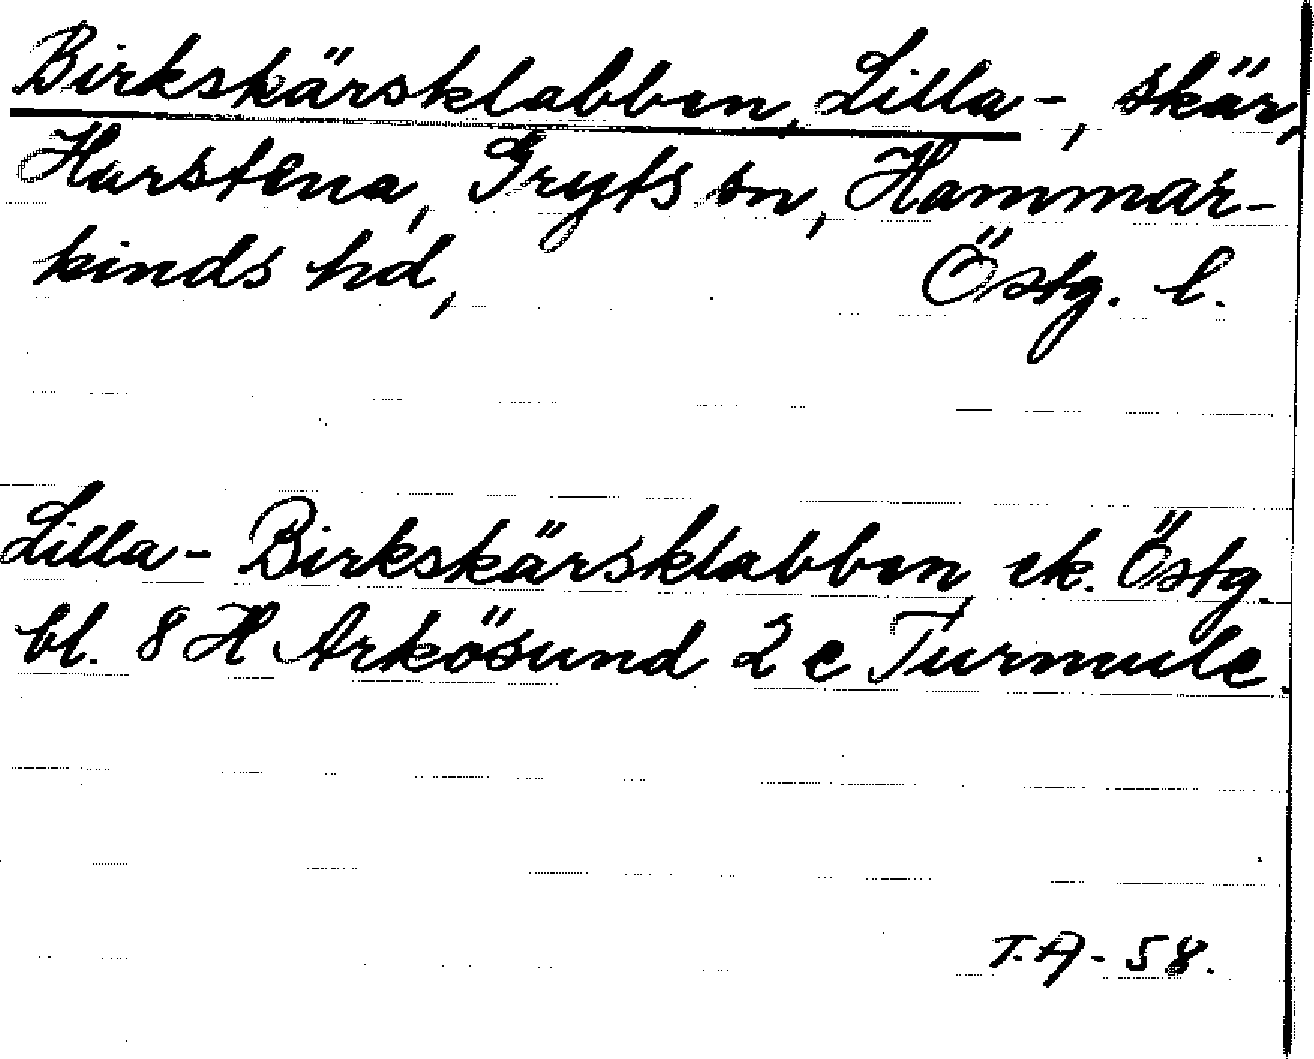 Birkskärsklabben, Lilla -, skär,
Harstena, Gryts sn, Hammar-
kinds hd, Östg. l.
Lilla - Birkskärsklabben ek. Östg.
bl. 8 H Arkösund 2 c Turmule.
T.A - 58.